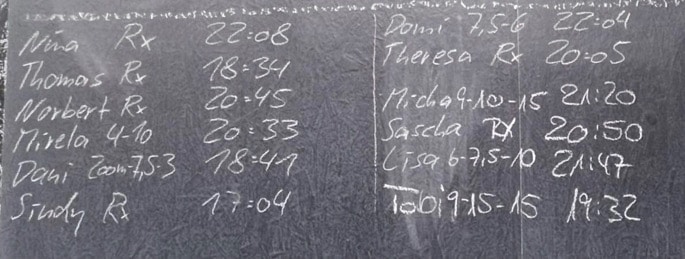 Nina Rx 22:08
Thomas Rx 18:34
Norbert Rx 20:45
Mirela 4-10 20:33
Dani Zoom 7,5-3 18:41
Sindy Rx 17:04
Domi 7,5-6 22:04
Theresa Rx 20:05
Micha 9-10-15 21:20
Sascha RX 20:50
Lisa 6-7,5-10 21:47
Tobi 9-15-15 19:32